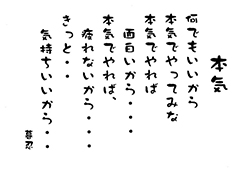 本気
何でもいいから
本気でやってみな
本気でやれば
面白いから・・・
本気でやれば、
疲れないから・・・・
きっと・・
気持ちいいから・・
暮忍